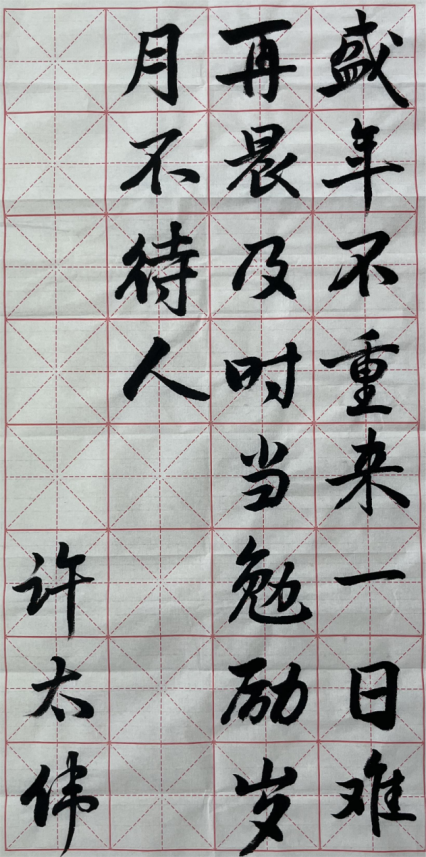 盛年不重来一日难
再晨及时当勉励岁
月不待人
许太伟